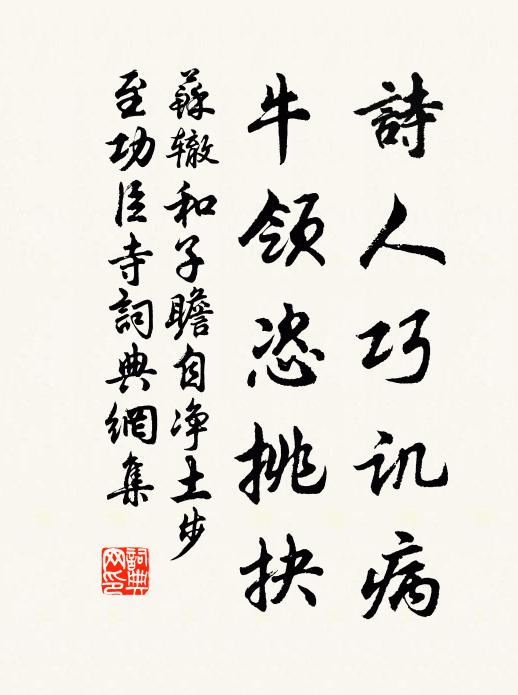 詩人巧讥病
牛領恣挑抉
蘇辙和子瞻自净土步
至功臣寺詞典網集
詞典网印